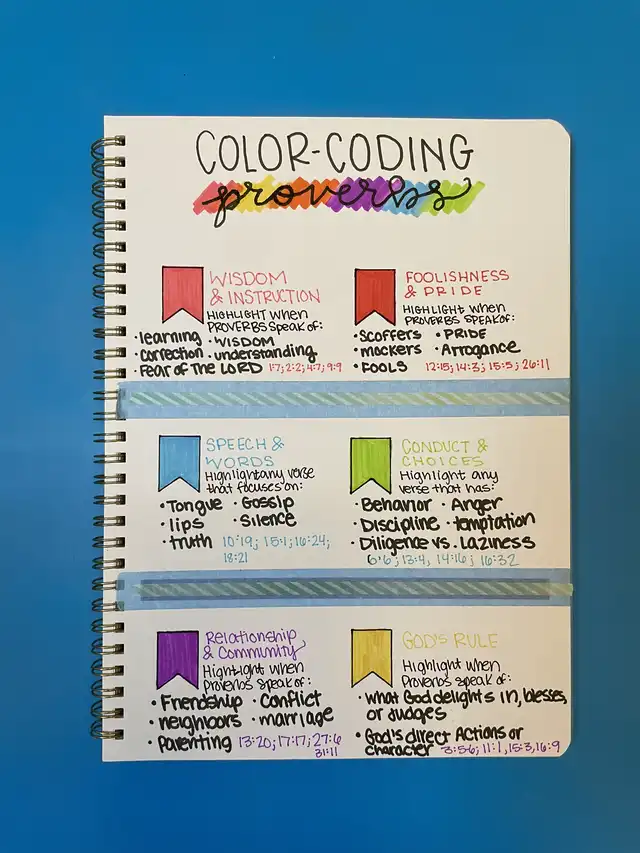 COLOR-CODING
proverbs
WISDOM
& INSTRUCTION
HIGHLIGHT WHEN
PROVERBS SPEAK OF:
·learning ·WISDOM
·correction ·understanding
·FEAR OF THE LORD 1:7; 2:2; 4:7; 9:9
FOOLISHNESS
& PRIDE
HIGHLIGHT WHEN
PROVERBS SPEAK OF:
·Scoffers ·PRIDE
·mockers ·Arrogance
·FOOLS 12:15; 14:3; 15:5; 26:11
SPEECH &
WORDS
Highlight any verse
that focuses on:
·Tongue ·Gossip
·lips ·Silence
·truth 10:19; 15:1; 16:24;
18:21
CONDUCT &
CHOICES
Highlight any
verse that has:
·Behavior ·Anger
·Discipline ·temptation
·Diligence vs. Laziness
6:6; 13:4, 14:16; 16:32
Relationship
& Community
Highlight when
Proverbs speak of:
·Friendship ·Conflict
·neighbors ·marriage
·parenting 13:20; 17:17; 27:6
31:11
GOD'S RULE
Highlight when
Proverbs speak of:
·what God delights in, blesses,
or judges
·God's direct Actions or
character 3:5-6; 11:1, 15:3, 16:9